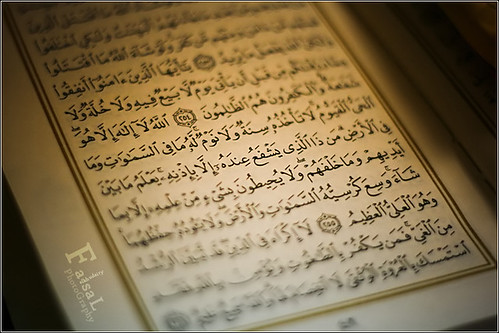 ٱلۡبَيِّنَٰتُ وَلَٰكِنِ ٱخۡتَلَفُواْ
كَفَرَ وَلَوۡ شَآءَ ٱللَّهُ مَا ٱقۡتَتَلُواْ
يُرِيدُ ٢٥٣ يَٰٓأَيُّهَا ٱلَّذِينَ ءَامَنُوٓاْ أَنفِقُواْ
مِّن قَبۡلِ أَن يَأۡتِيَ يَوۡمٞ لَّا بَيۡعٞ فِيهِ وَلَا خُلَّةٞ وَلَا
شَفَٰعَةٞۗ وَٱلۡكَٰفِرُونَ هُمُ ٱلظَّٰلِمُونَ ٢٥٤ ٱللَّهُ لَآ إِلَٰهَ إِلَّا هُوَ
ٱلۡحَيُّ ٱلۡقَيُّومُۚ لَا تَأۡخُذُهُۥ سِنَةٞ وَلَا نَوۡمٞۚ لَّهُۥ مَا فِي ٱلسَّمَٰوَٰتِ وَمَا
فِي ٱلۡأَرۡضِۗ مَن ذَا ٱلَّذِي يَشۡفَعُ عِندَهُۥٓ إِلَّا بِإِذۡنِهِۦۚ يَعۡلَمُ مَا بَيۡنَ
أَيۡدِيهِمۡ وَمَا خَلۡفَهُمۡۖ وَلَا يُحِيطُونَ بِشَيۡءٖ مِّنۡ عِلۡمِهِۦٓ إِلَّا بِمَا
شَآءَۚ وَسِعَ كُرۡسِيُّهُ ٱلسَّمَٰوَٰتِ وَٱلۡأَرۡضَۖ وَلَا يَـُٔودُهُۥ حِفۡظُهُمَاۚ
وَهُوَ ٱلۡعَلِيُّ ٱلۡعَظِيمُ ٢٥٥ لَآ إِكۡرَاهَ فِي ٱلدِّينِۖ قَد تَّبَيَّنَ ٱلرُّشۡدُ
مِنَ ٱلۡغَيِّۚ فَمَن يَكۡفُرۡ بِٱلطَّٰغُوتِ وَيُؤۡمِنۢ بِٱللَّهِ فَقَدِ
ٱسۡتَمۡسَكَ بِٱلۡعُرۡوَةِ ٱلۡوُثۡقَىٰ لَا ٱنفِصَامَ لَهَاۗ وَٱللَّهُ سَمِيعٌ عَلِيمٌ
Faisal
PhotoGraphy